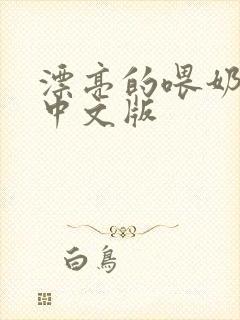 漂亮的喂奶
中文版
白鳥